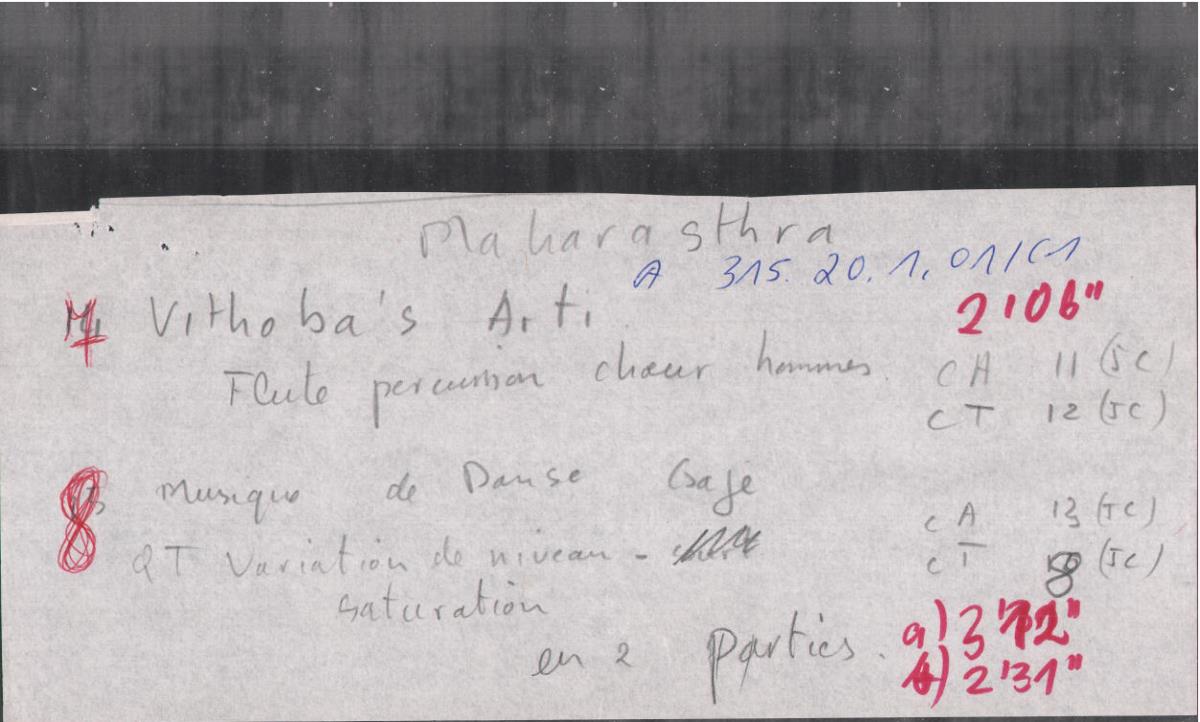 Maharasthra
A 315. 20. 1. 01/C1
7 Vithoba's Arti 2'06"
Flute percussion chœur hommes. CA 11 (JC)
CT 12 (JC)
8 Musique de Danse Gaje CA 13 (JC)
QT Variation de niveau - CT 8 (JC)
saturation
en 2 parties. a) 3'12"
b) 2'31"